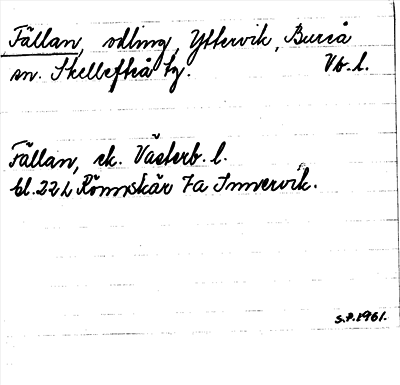 Fällan, odling, Yttervik, Bureå
sn. Skellefteå tg. Vb. l.
Fällan, ek. Västerb. l.
bl. 22 L Rönnskär 7a Innervik.
S.P. 1961.